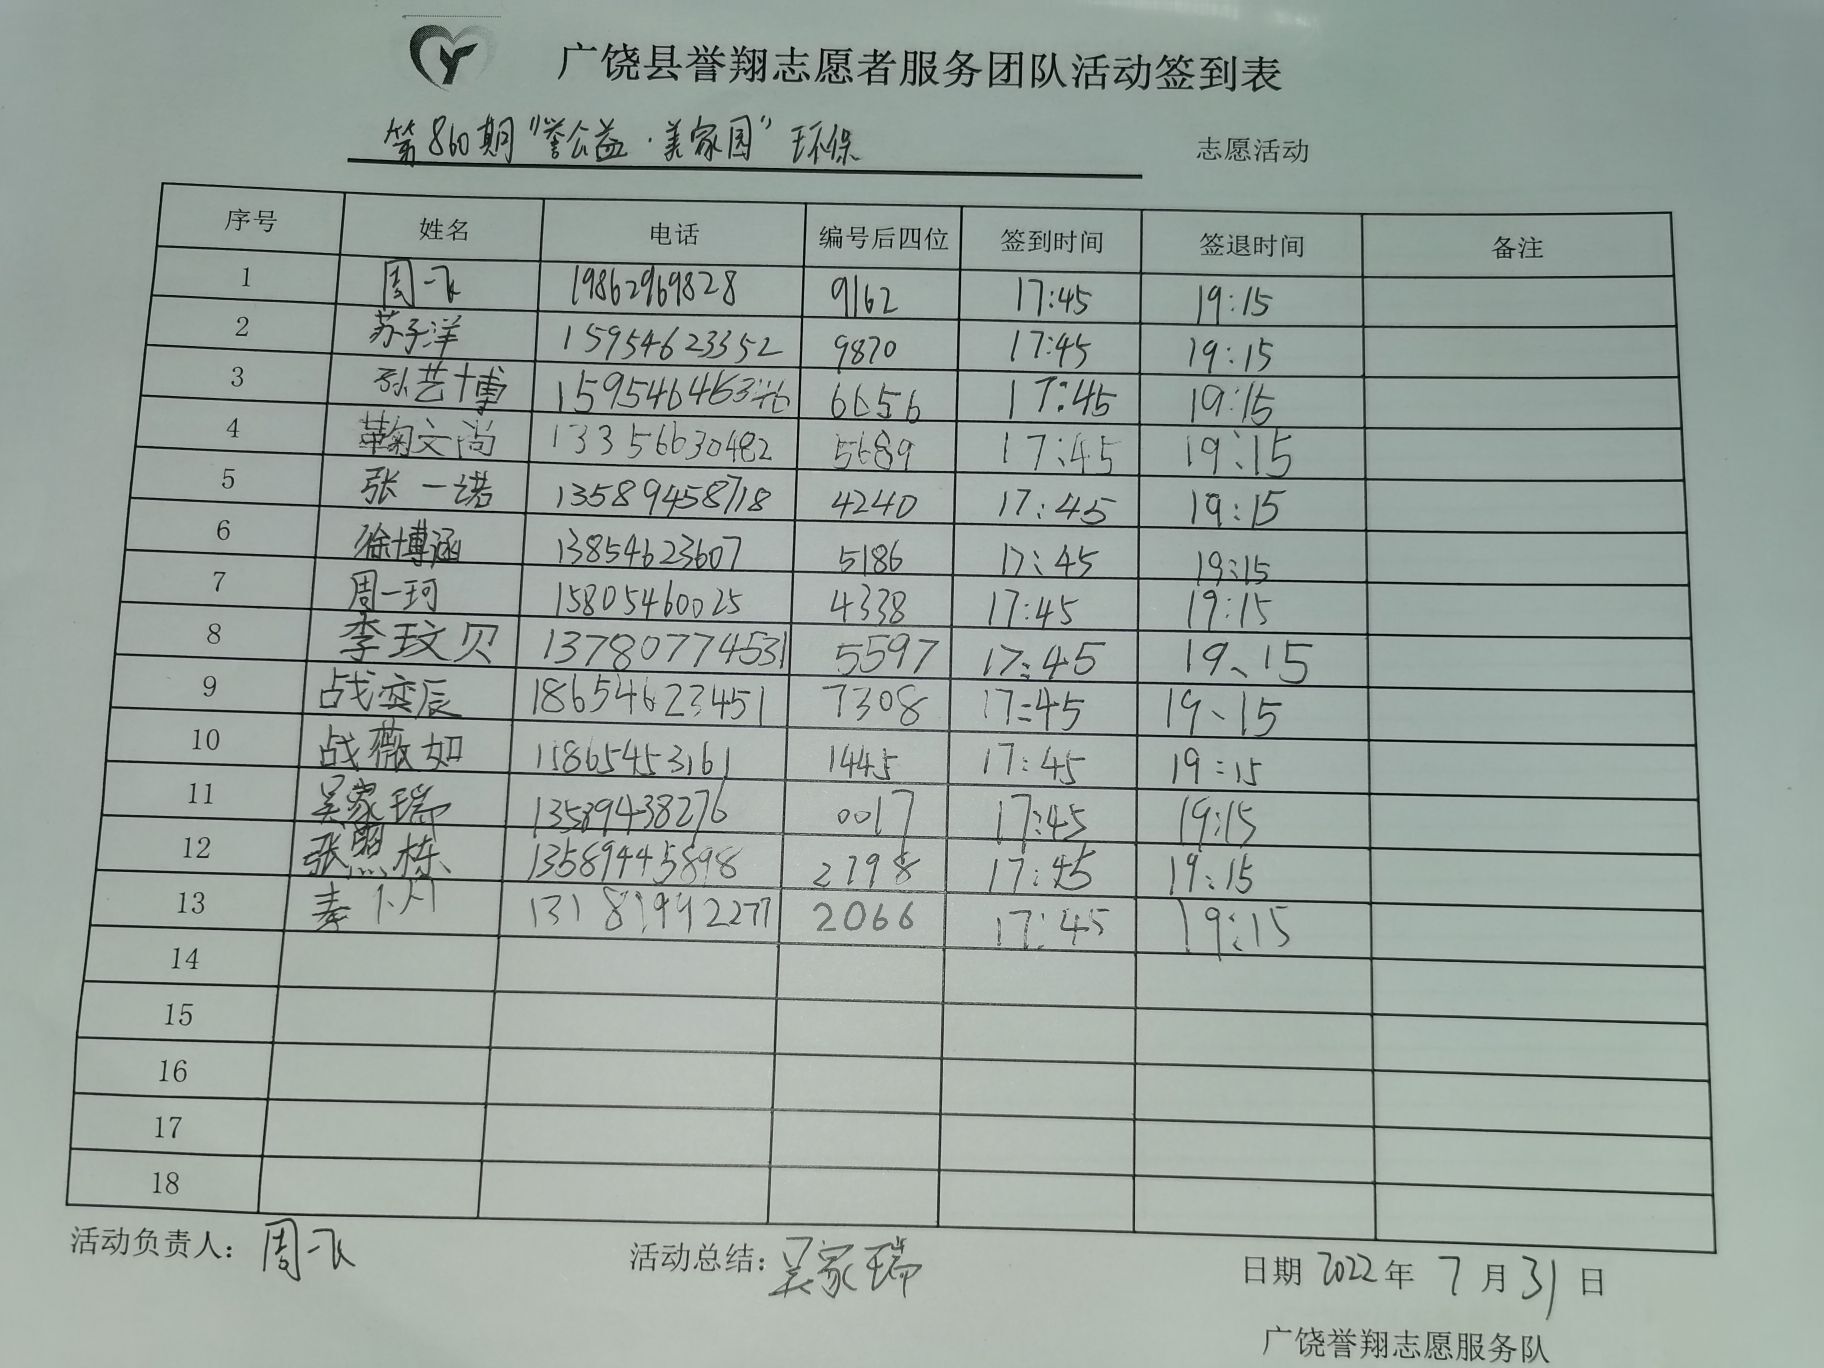 广饶县誉翔志愿者服务团队活动签到表
第860期“誉公益·美家园”环保 志愿活动
序号 姓名 电话 编号后四位 签到时间 签退时间 备注
1 周一飞 19862969828 9162 17:45 19:15
2 苏子洋 15954623352 9870 17:45 19:15
3 孙艺博 6656 17:45 19:15
4 鞠文尚 13356630482 5689 17:45 19:15
5 张一诺 13589458718 4240 17:45 19:15
6 徐博涵 13854623607 5186 17:45 19:15
7 周一珂 15805460025 4338 17:45 19:15
8 李玟贝 13780774531 5597 17:45 19、15
9 战奕辰 18654623451 7308 17:45 19、15
10 战薇如 15865453161 1445 17:45 19:15
11 吴家瑞 13589438276 0017 17:45 19:15
12 张照栋 13589445898 2798 17:45 19:15
13 13181992277 2066 17:45 19:15
14
15
16
17
18
活动负责人：周一飞 活动总结：吴家瑞 日期 2022年 7月31日
广饶誉翔志愿服务队